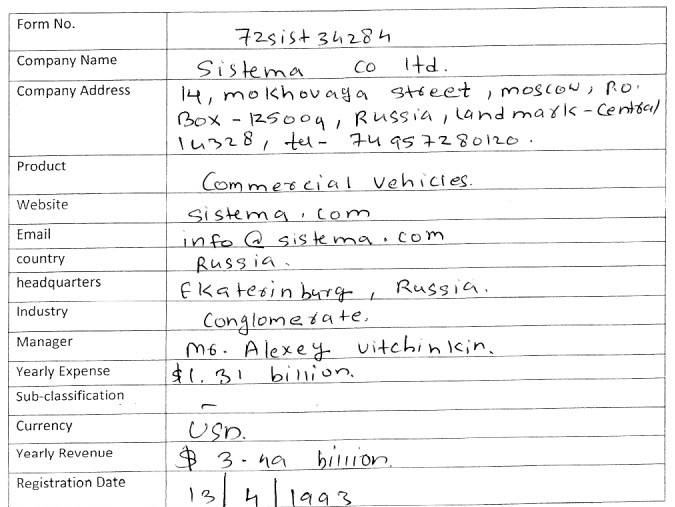 Form No. 72sist34284
Company Name Sistema co ltd.
Company Address 14, mokhovaya street, moscow, P.O.
Box - 125009, Russia, landmark - Central
14328, tel - 74957280120.
Product Commercial vehicles.
Website sistema.com
Email info@sistema.com
country Russia.
headquarters Ekaterinburg, Russia.
Industry Conglomerate.
Manager Mr. Alexey vitchinkin.
Yearly Expense $1.31 billion.
Sub-classification -
Currency USD.
Yearly Revenue $ 3.49 billion.
Registration Date 13/4/1993